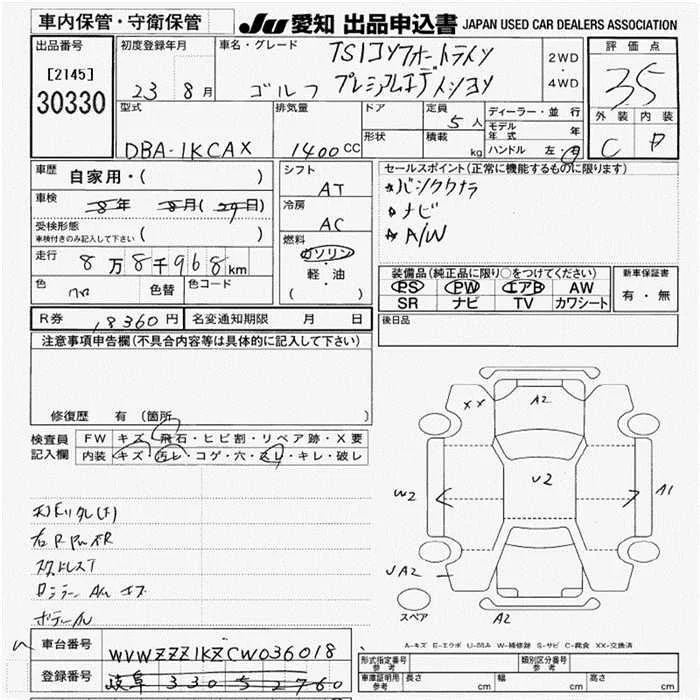 車内保管・守衛保管
JU 愛知 出品申込書 JAPAN USED CAR DEALERS ASSOCIATION
出品番号
[2145]
30330
初度登録年月
23 8月
車名・グレード
TSIコンフォートライン
ゴルフ プレミアムエディション
2WD
・
4WD
評価点
3.5
外装 内装
C D
型式
DBA-1KCAX
排気量
1400cc
ドア
形状
定員
5人
積載
kg
ディーラー・並行
モデル年式 年
ハンドル 左・右
車歴
自家用・( )
車検
8年 8月(29日)
受検形態
車検付きのみ記入して下さい
( )
走行
8万8千968km
色
色替
色コード
シフト
AT
冷房
AC
燃料
ガソリン
・
軽・油
( )
セールスポイント(正常に機能するものに限ります)
ナビ
A/W
装備品(純正品に限り○をつけてください)
PS PW エアB AW
SR ナビ TV カワシート
新車保証書
有・無
R券 18360円
名変通知期限 月 日
後日品
注意事項申告欄(不具合内容等は具体的に記入して下さい)
修復歴 有(箇所 )
検査員
記入欄
FW キズ・飛石・ヒビ割・リペア跡・X要
内装 キズ・汚レ・コゲ・穴・スレ・キレ・破レ
XX
A2
W2
U2
A1
UA2
A2
スペア
A-キズ E-エクボ U-凹み W-補修跡 S-サビ C-腐食 XX-交換済
車台番号
WVWZZZ1KZCW036018
登録番号
岐阜 330 5 2760
形式指定番号
参考
類別区分番号
参考
車庫証明用
参考
長さ cm
幅 cm
高さ cm